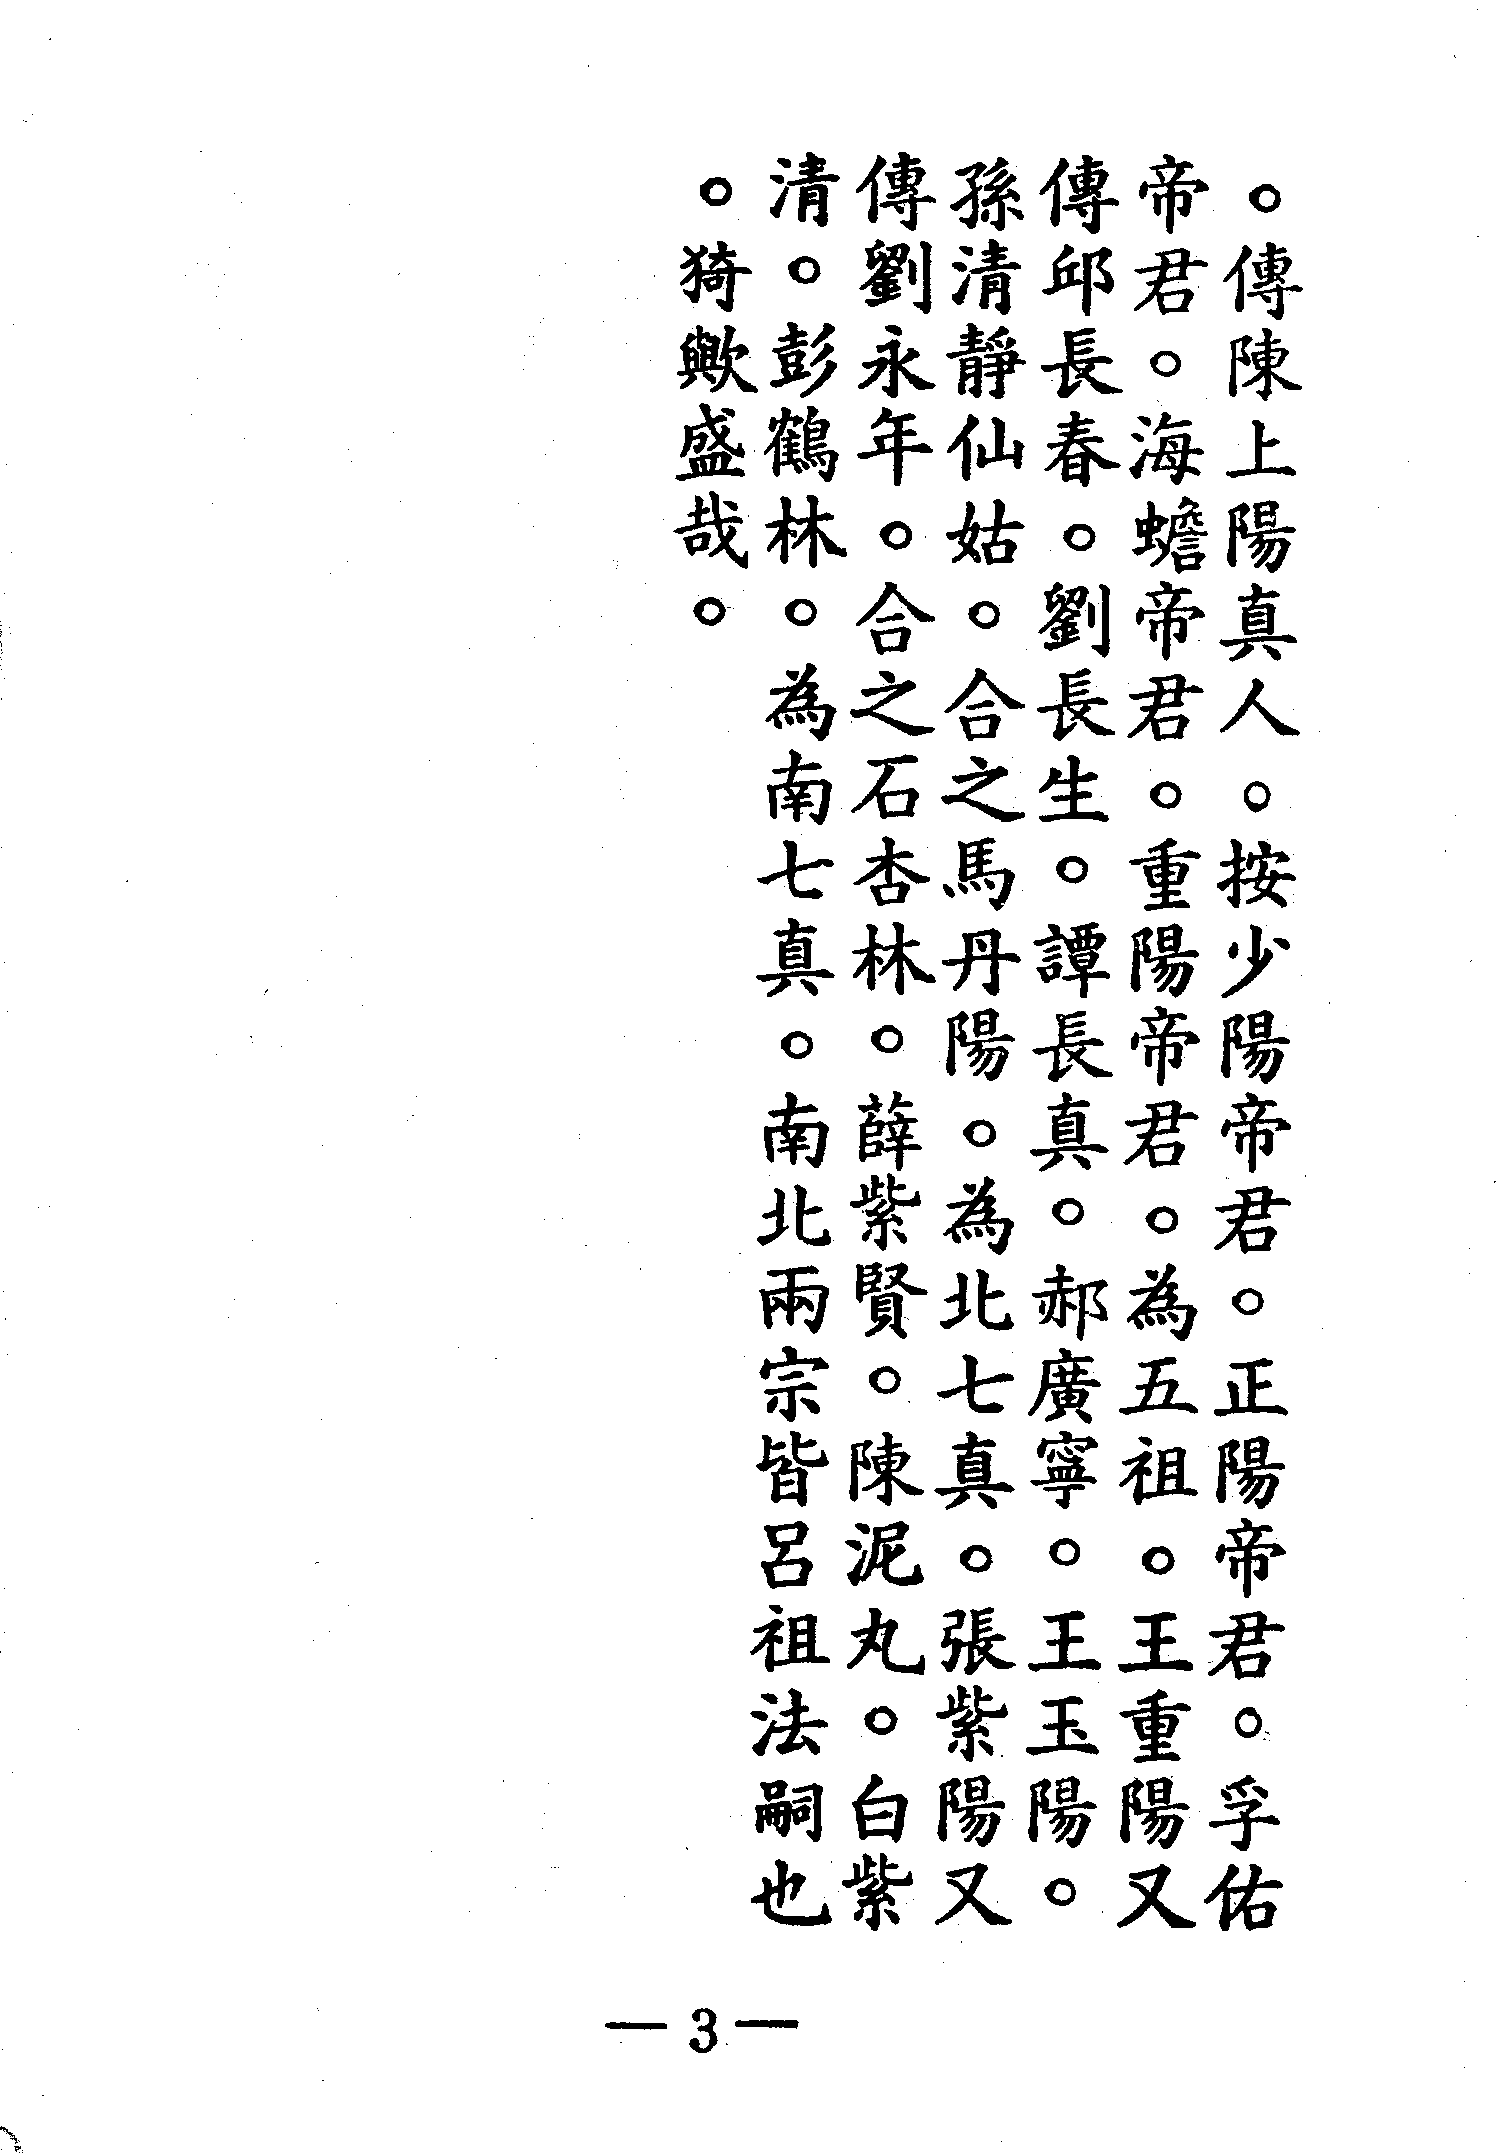 。傳陳上陽真人。按少陽帝君。正陽帝君。孚佑
帝君。海蟾帝君。重陽帝君。為五祖。王重陽又
傳邱長春。劉長生。譚長真。郝廣寧。王玉陽。
孫清靜仙姑。合之馬丹陽。為北七真。張紫陽又
傳劉永年。合之石杏林。薛紫賢。陳泥丸。白紫
清。彭鶴林。為南七真。南北兩宗皆呂祖法嗣也
。猗歟盛哉。
— 3 —